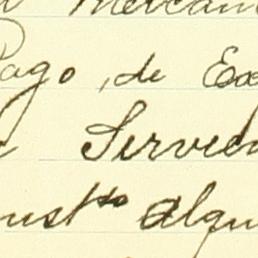 Mercan
Pago, de Ex
Servic
ust^to alqu